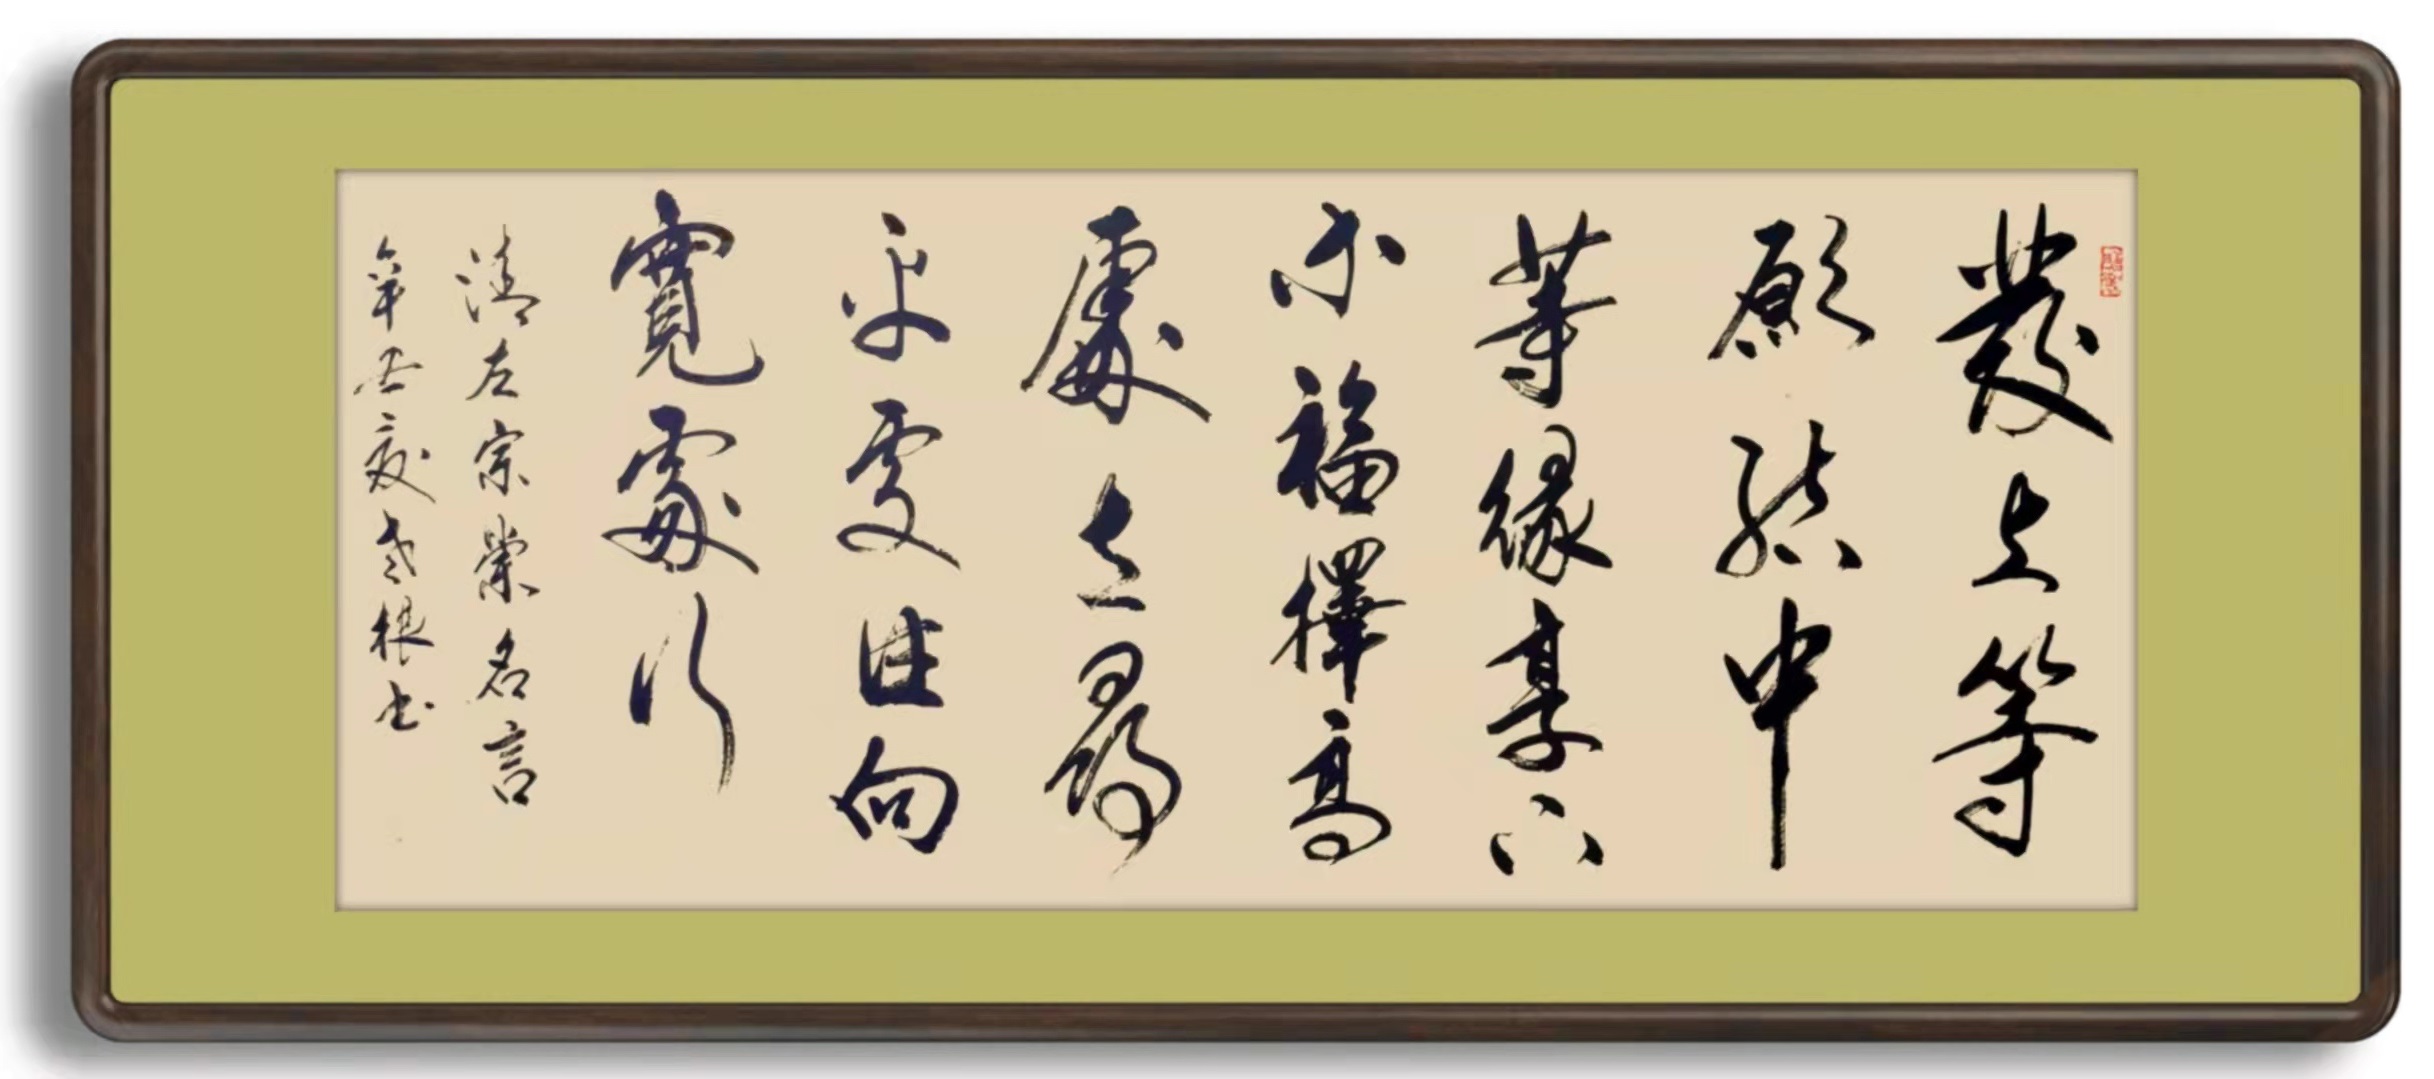 發上等
願結中
等緣享下
等福擇高
處立尋
平處住向
寬處行
清左宗棠名言
辛丑夏老根书